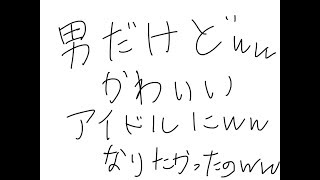 男だけどww
かわいい
アイドルにww
なりたかったのww